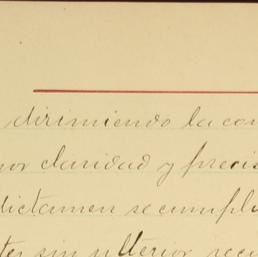 dirimiendo la con
or claridad y precis
dictamen se cumpli
sin ulterior recu